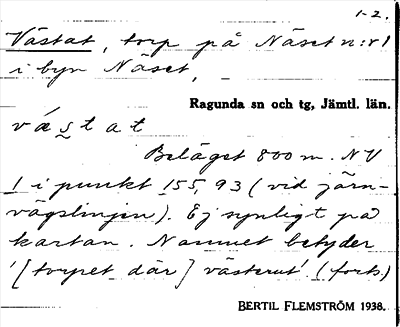 1-2.
Västat, torp på Näset n:r 1
i byn Näset,
Ragunda sn och tg, Jämtl. län.
væstat
Beläget 800 m. NV
1 i punkt 155, 93 (vid järn-
vägslinjen). Ej synligt på
kartan. Namnet betyder
'[torpet där] västerut'. (forts.)
BERTIL FLEMSTRÖM 1938.